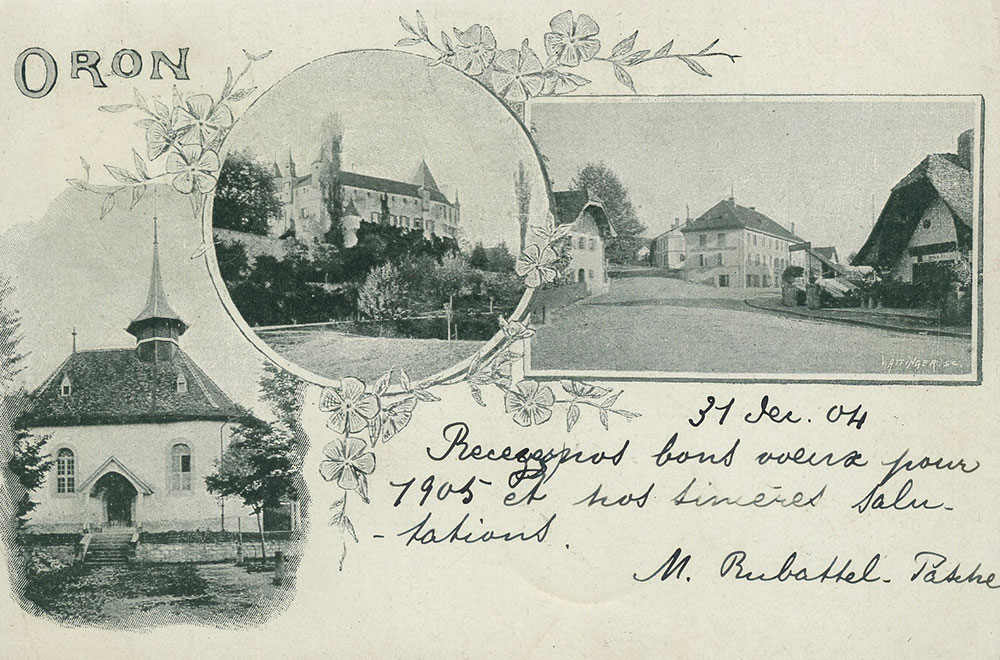 ORON
31 Dec. 04
Recevez nos bons voeux pour
1905 et nos sincères salu-
-tations.
M. Rubattel-Pasche